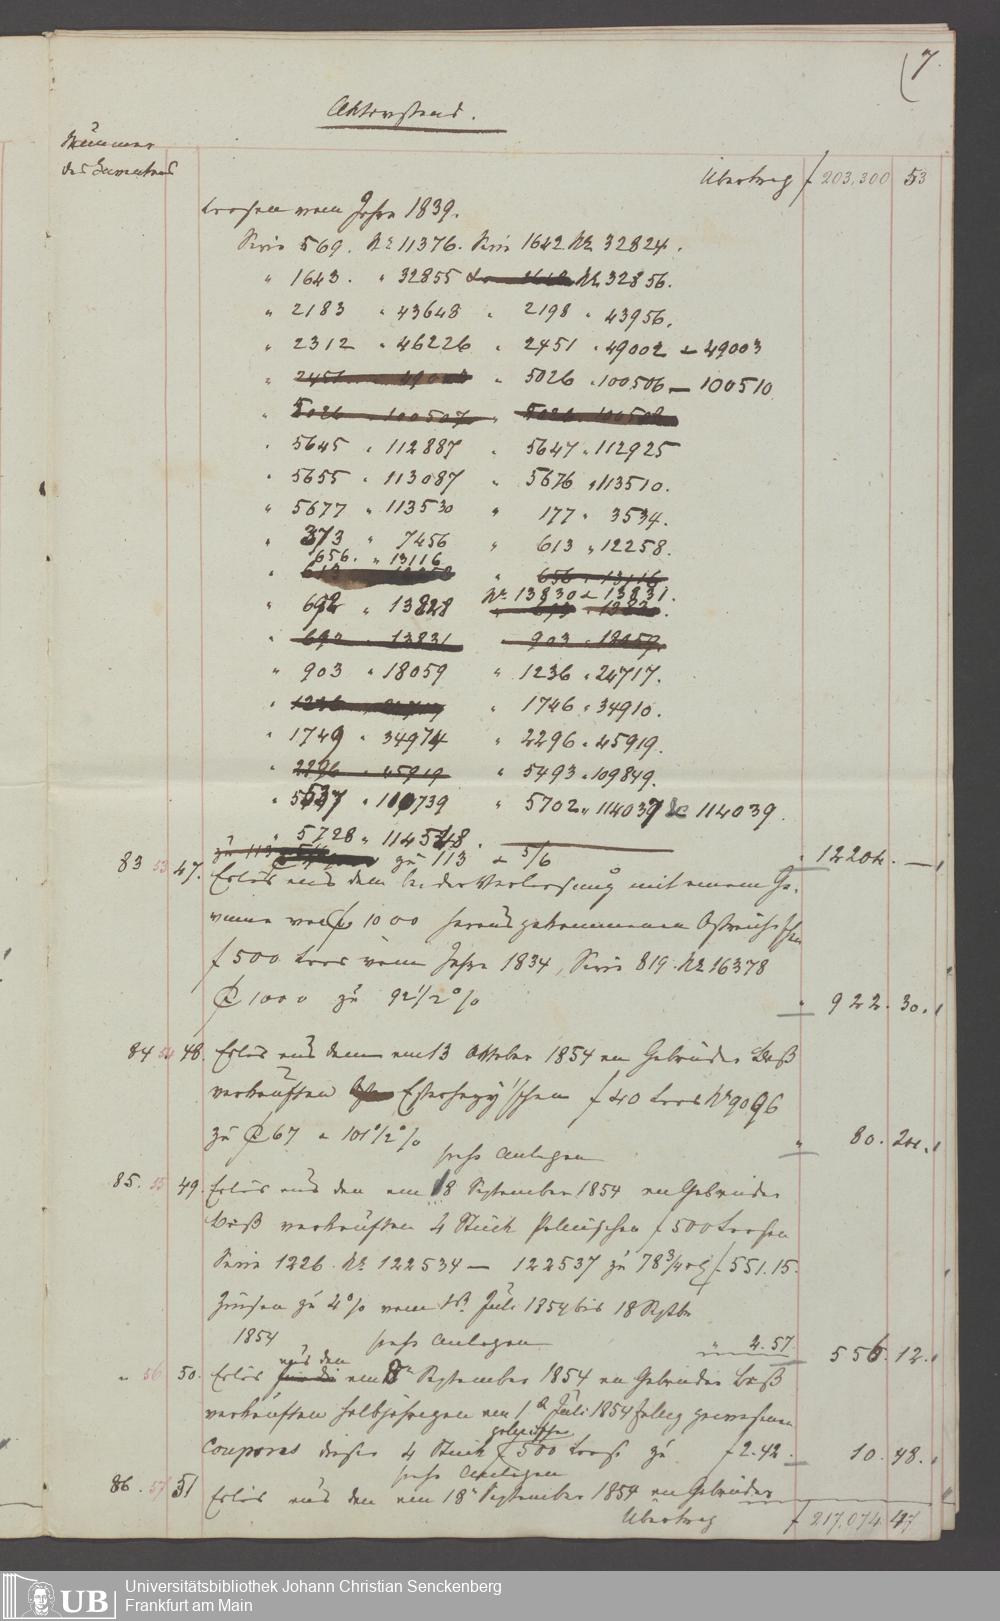 7.
Aktivstand.
Nummer
des Inventars
Übertrag f 203,300 53
Loosen vom Jahre 1839.
Serie 569. No 11376. Serie 1642 No 32824.
" 1643. " 32855 & No 32856.
" 2183 " 43648 " 2198 " 43956.
" 2312 " 46226 " 2451 " 49002 & 49003
" 2451 " " 5026 " 100506 — 100510
" 5026 " 100507 " 5026 100508
" 5645 " 112887 " 5647 " 112925
" 5655 " 113087 " 5676 " 113510.
" 5677 " 113530 " 177 " 3534.
" 373 " 7456 " 613 " 12258.
656. " 13116
" 613 " 656 " 13116
No 13830 & 13831.
" 692 " 13828
" 692 " 13831 " 903 " 18059.
" 903 " 18059 " 1236 " 24717.
" 1236 " " 1746 " 34910.
" 1749 " 34974 " 2296 " 45919.
" 2296 " 45919 " 5493 " 109849.
" 5537 " 110739 " 5702 " 114037 & 114039.
" 5728 " 114548.
zu 113 zu 113 & 5/6 " 12204. —
83 53 47. Erlös aus dem bei der Verloosung mit einem Ge-
winne von f 1000 herausgekommenen Östreichischen
f 500 Loos vom Jahre 1834, Serie 819 No 16378
f 1000 zu 92 1/2 % " 922. 30.
84 54 48. Erlös aus dem am 13 Oktober 1854 an Gebrüder Baß
verkauften Esterhazy'schen f 40 Loos No 9096
zu f 67 a 101 1/2 % " 80. 24.
siehe Anlagen
85. 55 49. Erlös aus den am 18 September 1854 an Gebrüder
Baß verkauften 4 Stück Polnischen f 500 Loosen
Serie 1226. No 122534 — 122537 zu 78 3/4 f 551.15.
Zinsen zu 4 % vom 1st Juli 1854 bis 18 Septbr
1854 siehe Anlagen " 4.57. 556. 12.
aus den
" 56 50. Erlös für die am 18n September 1854 an Gebrüder Baß
verkauften halbjährigen am 1n Juli 1854 fällig gewesenen
polnische
Coupons dieser 4 Stück f 500 Loose zu f 2.42. 10. 48.
siehe Anlagen
86. 57 51 Erlös aus den am 18n September 1854 an Gebrüder
Übertrag f 217,074 47
Universitätsbibliothek Johann Christian Senckenberg
Frankfurt am Main
UB